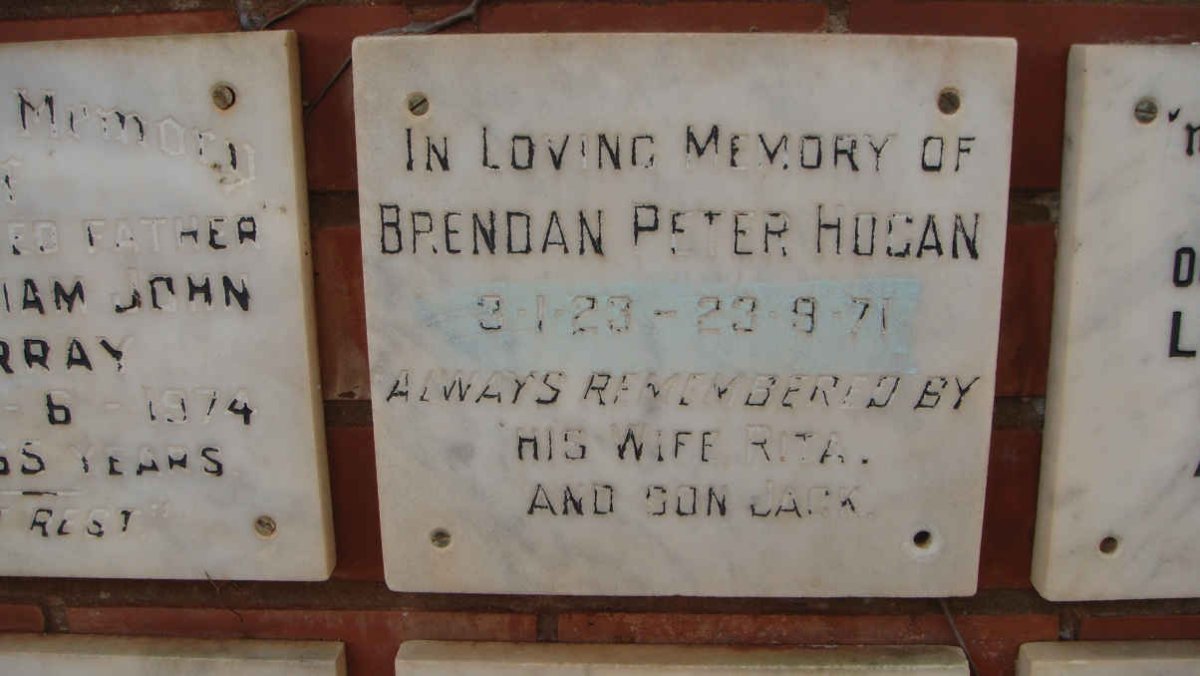 Memory
FATHER
JOHN
6 - 1974
YEARS
REST"
IN LOVING MEMORY OF
BRENDAN PETER HOGAN
3·1·23 - 23·9·71
ALWAYS REMEMBERED BY
HIS WIFE RITA.
AND SON JACK.